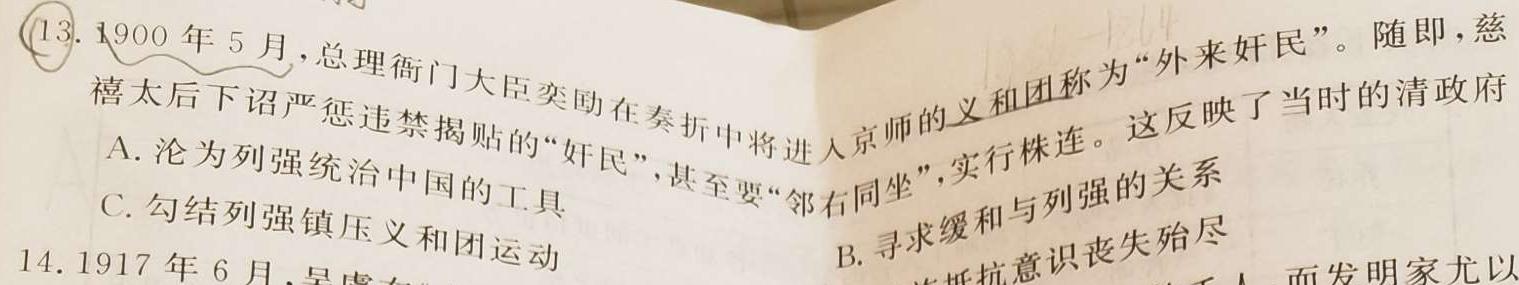 13. 1900 年 5 月,总理衙门大臣奕劻在奏折中将进入京师的义和团称为“外来奸民”。随即,慈
禧太后下诏严惩违禁揭贴的“奸民”,甚至要“邻右同坐”,实行株连。这反映了当时的清政府
A. 沦为列强统治中国的工具
B. 寻求缓和与列强的关系
C. 勾结列强镇压义和团运动
抵抗意识丧失殆尽
14. 1917 年 6 月,吴虞在
人 而发明家尤以